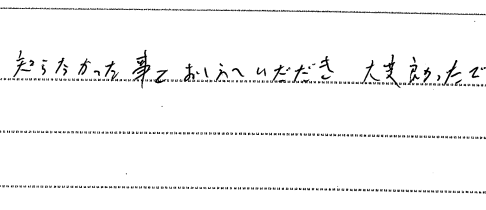 知らなかった事をおしえていただき 大変良かったで